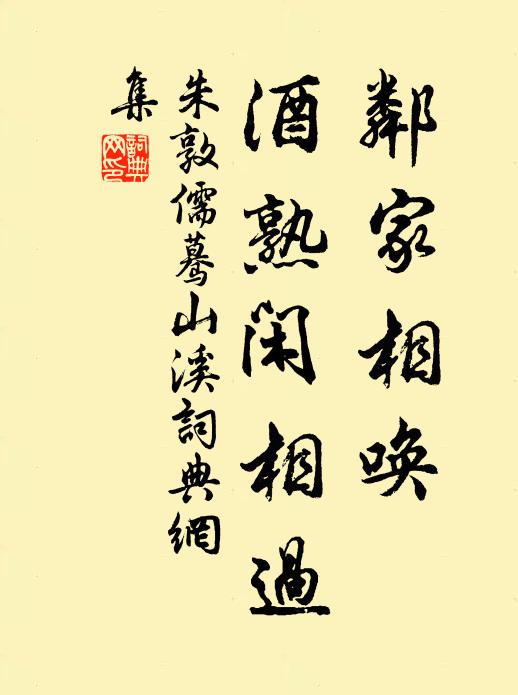 鄰家相唤
酒熟閑相過
朱敦儒驀山溪詞典網
集
詞典
网印